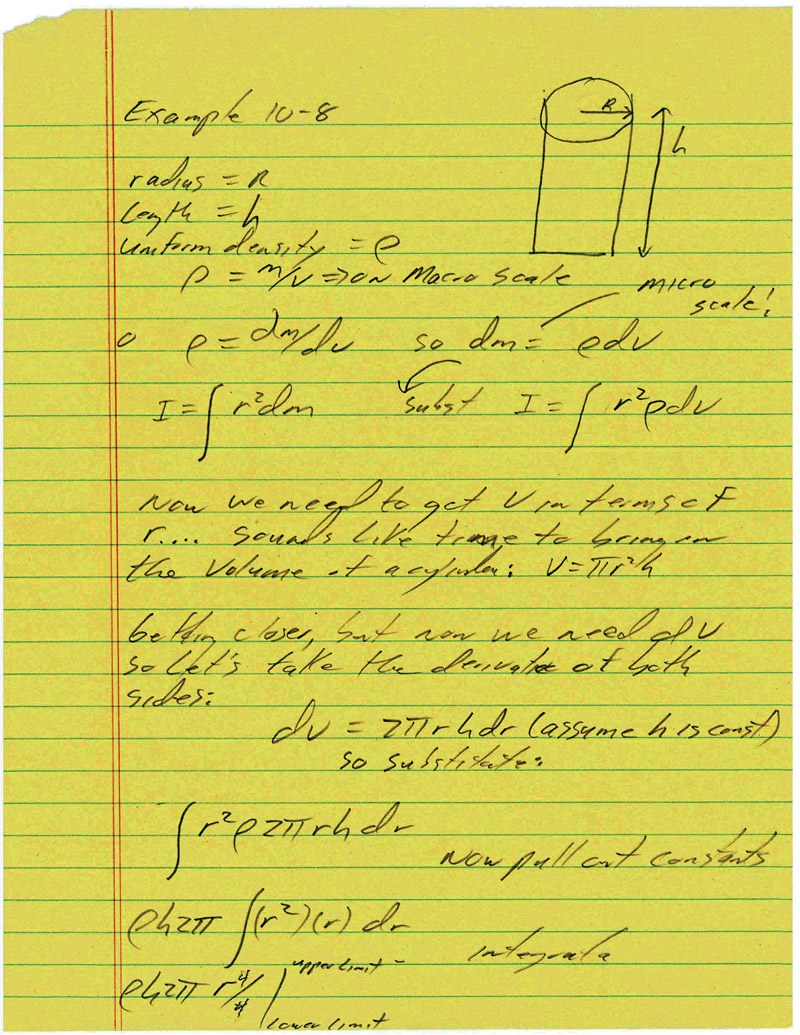 Example 10-8
R
h
radius = R
length = h
uniform density = ρ
ρ = m/v ⇒ on Macro scale
micro
scale!
o ρ = dm/dv so dm = ρdv
I = ∫ r²dm subst I = ∫ r²ρdv
Now we need to get V in terms of
r.... sounds like time to bring in
the Volume of a cylinder: V = πr²h
getting closer, but now we need dV
so Let's take the derivative of both
sides:
dv = 2πrhdr (assume h is const)
so substitute:
∫ r²ρ2πrhdr
Now pull out constants
ρh2π ∫(r²)(r) dr
integrate
ρh2π r⁴/4 | upper limit -
lower limit